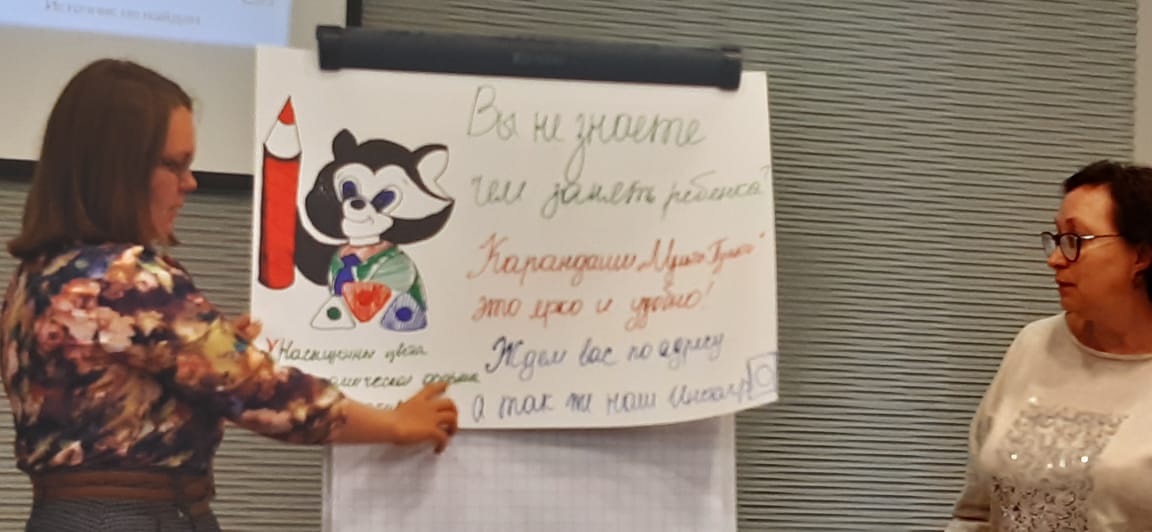 Источник не найден
Вы не знаете
чем занять ребенка?
Карандаши „Мульти-Пульти"
это ярко и удобно!
Ждем вас по адресу
а так же наш Инстагр
Насыщенные цвета